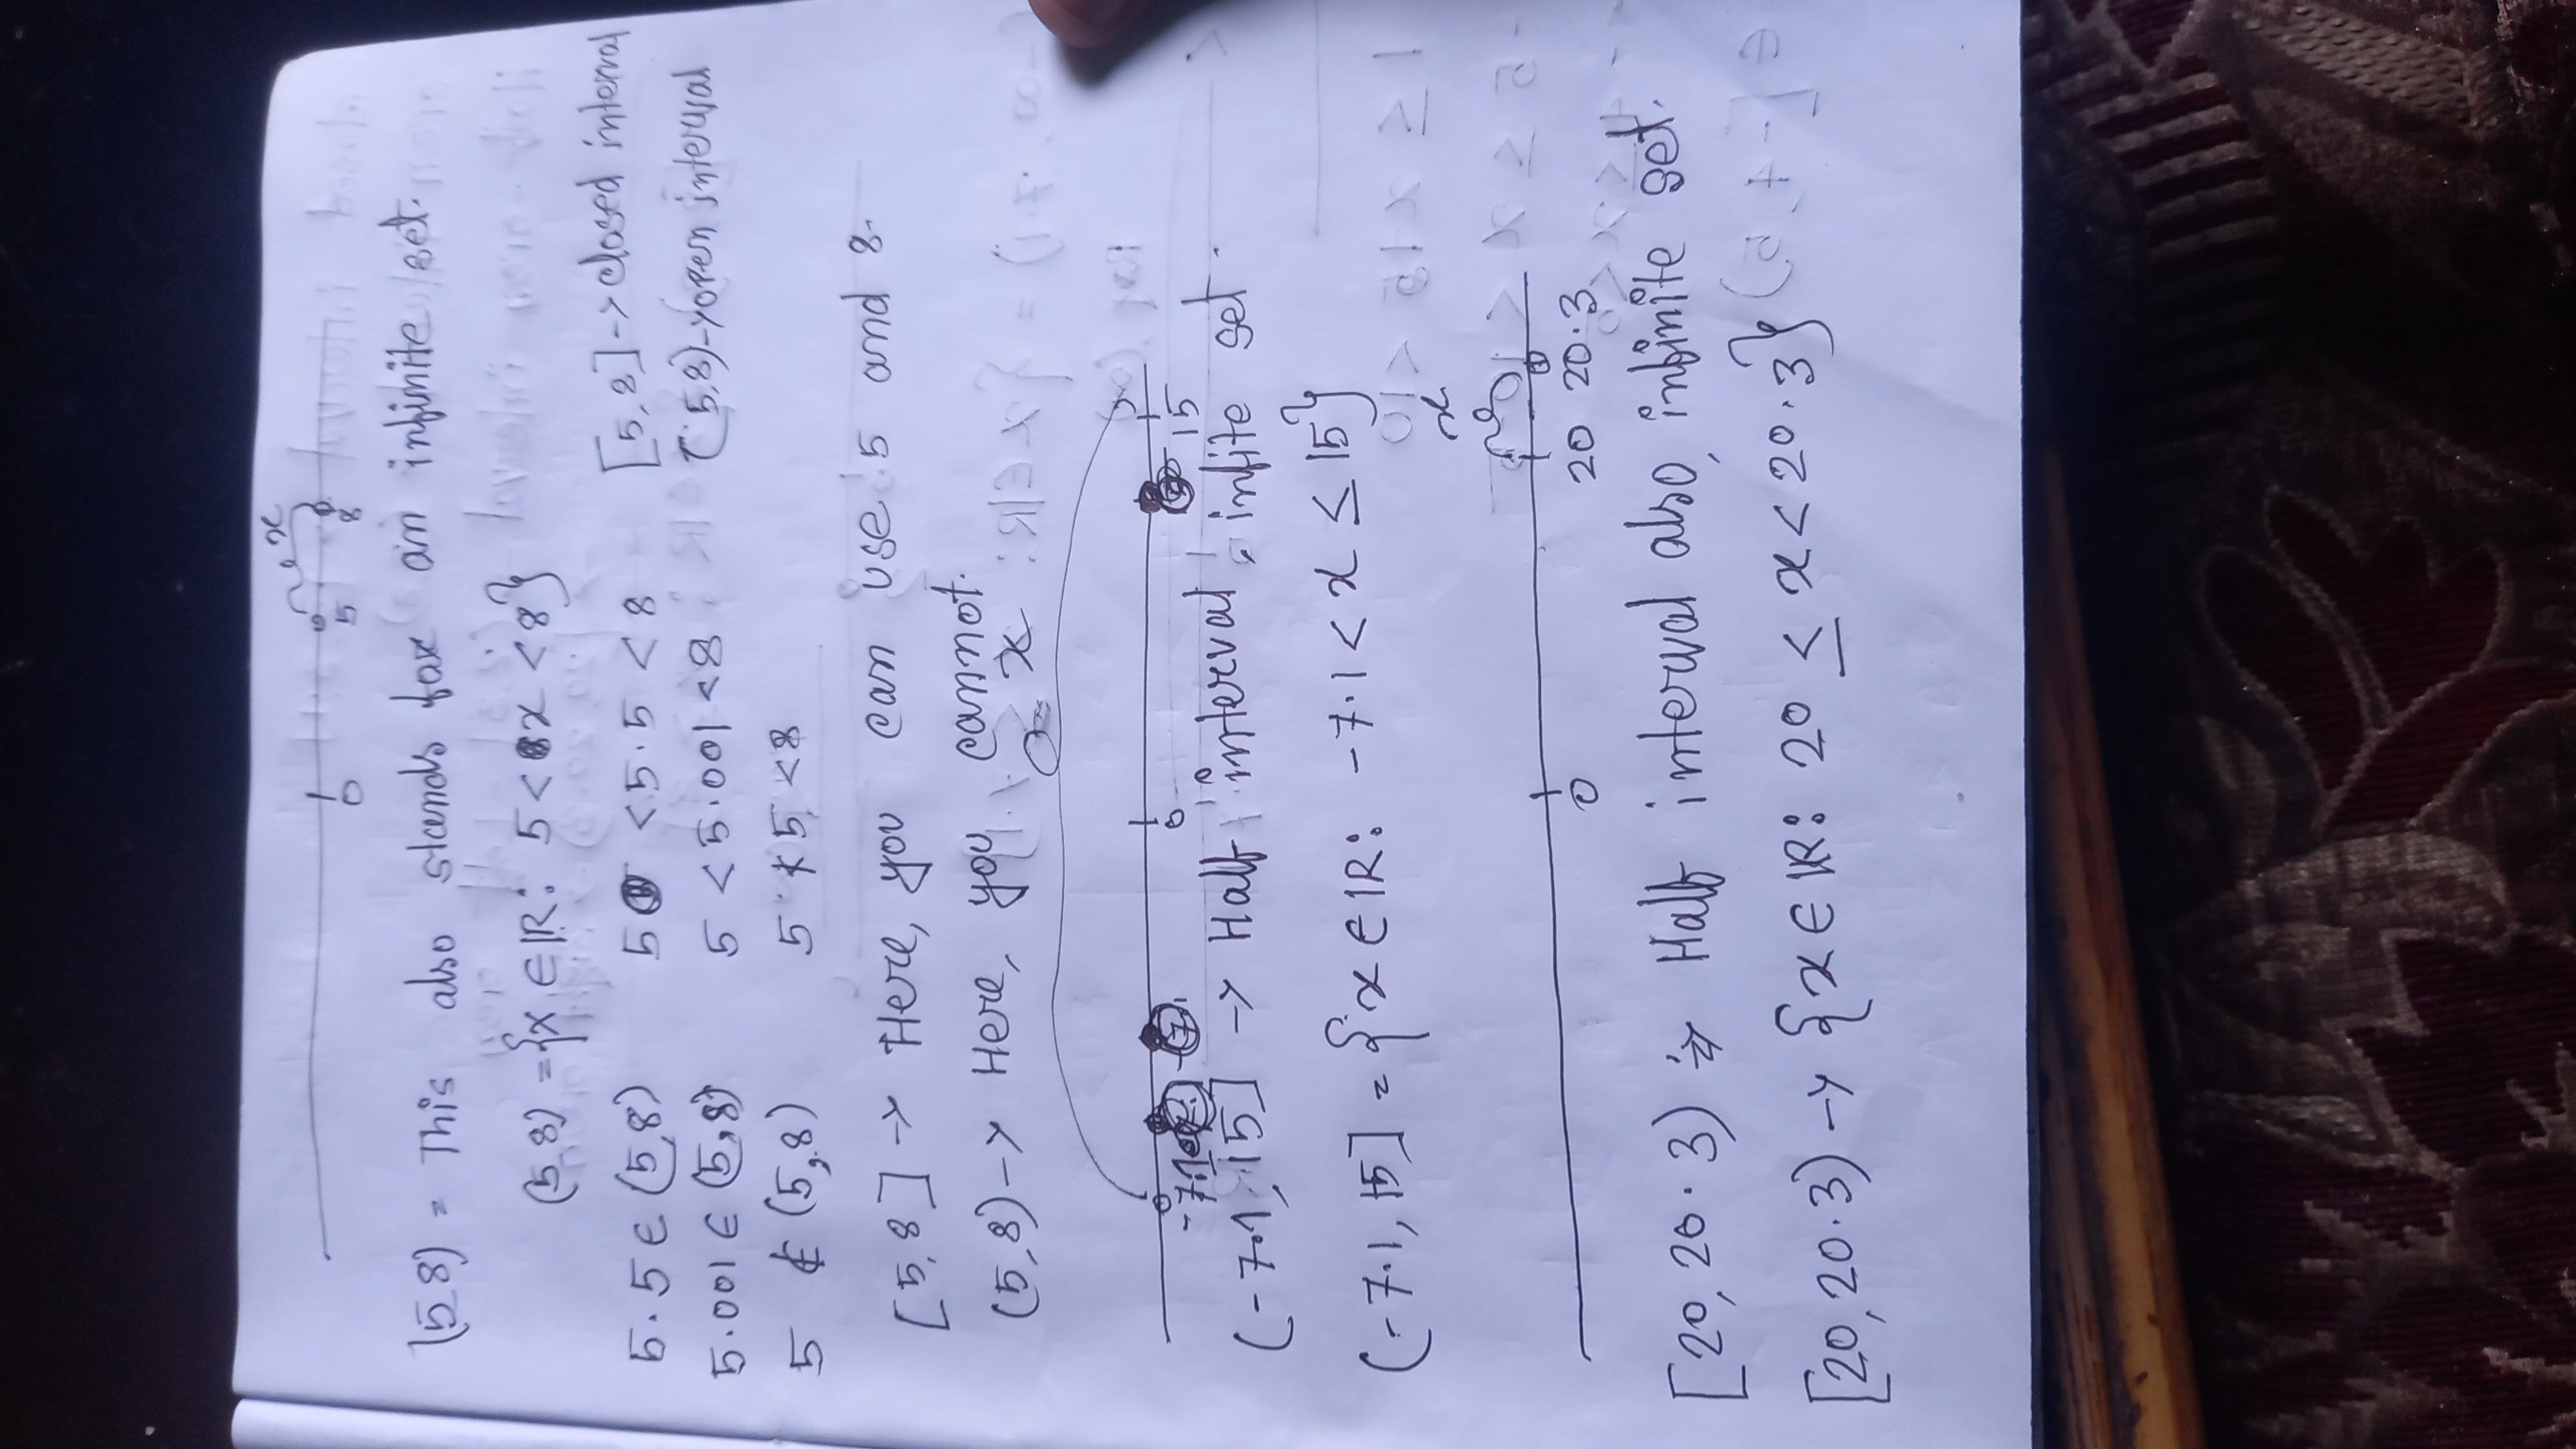 x
0 5 8
(5,8) = This also stands for an infinite set.
(5,8) = {x ∈ ℝ: 5 < x < 8}
5.5 ∈ (5,8) 5 < 5.5 < 8 [5,8] -> closed interval
5.001 ∈ (5,8) 5 < 5.001 < 8 (5,8) -> open interval
5 ∉ (5,8) 5 ≮ 5 < 8
[5,8] -> Here, you can use 5 and 8.
(5,8) -> Here, you cannot.
x
-7.1 0 15
(-7.1, 15] -> Half interval, infite set.
(-7.1, 15] = {x ∈ ℝ: -7.1 < x ≤ 15}
x
0 20 20.3
[20, 20.3) => Half interval also, infinite set.
[20, 20.3) -> {x ∈ ℝ: 20 ≤ x < 20.3}